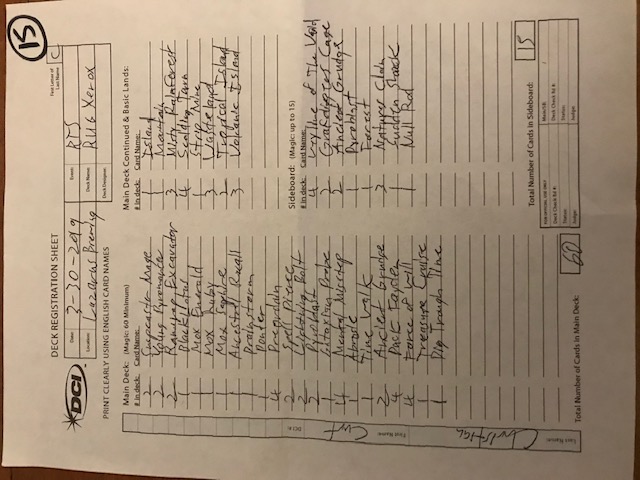 15
DECK REGISTRATION SHEET
First Letter of Last Name C
DCI
Date: 3-30-2019 Event: RTS
Location: Lazarus Brewing Deck Name: RUG Xerox
Deck Designer:
PRINT CLEARLY USING ENGLISH CARD NAMES
Main Deck: (Magic: 60 Minimum)
# in deck: Card Name:
2 Snapcaster Mage
2 Young Pyromancer
2 Ramunap Excavator
1 Black Lotus
1 Mox Emerald
1 Mox Ruby
1 Mox Saphire
1 Ancestral Recall
1 Brainstorm
1 Ponder
4 Preordain
2 Spell Pierce
2 Lightning Bolt
2 Pyroblast
1 Gitaxian Probe
4 Mental Misstep
1 Abrade
1 Time Walk
2 Ancient Grudge
4 Dack Fayden
4 Force of Will
1 Treasure Cruise
1 Dig Trough Time
Total Number of Cards in Main Deck: 60
Main Deck Continued & Basic Lands:
# in deck: Card Name:
1 Island
1 Mountain
3 Misty Rainforest
4 Scalding Tarn
1 Strip Mine
3 Wasteland
2 Tropical Island
3 Volcanic Island
Sideboard: (Magic: up to 15)
# in deck: Card Name:
4 of The Void
2 Grafdiggers Cage
2 Ancient Grudge
1 Pyroblast
1 Forest
3 Natures Claim
1 Sudden Shock
1 Null Rod
Total Number of Cards in Sideboard: 15
FOR OFFICIAL USE ONLY Main/SB: /
Deck Check Rd #: Deck Check Rd #:
Status: Status:
Judge: Judge:
DCI #:
First Name: Curt
Last Name: Christian